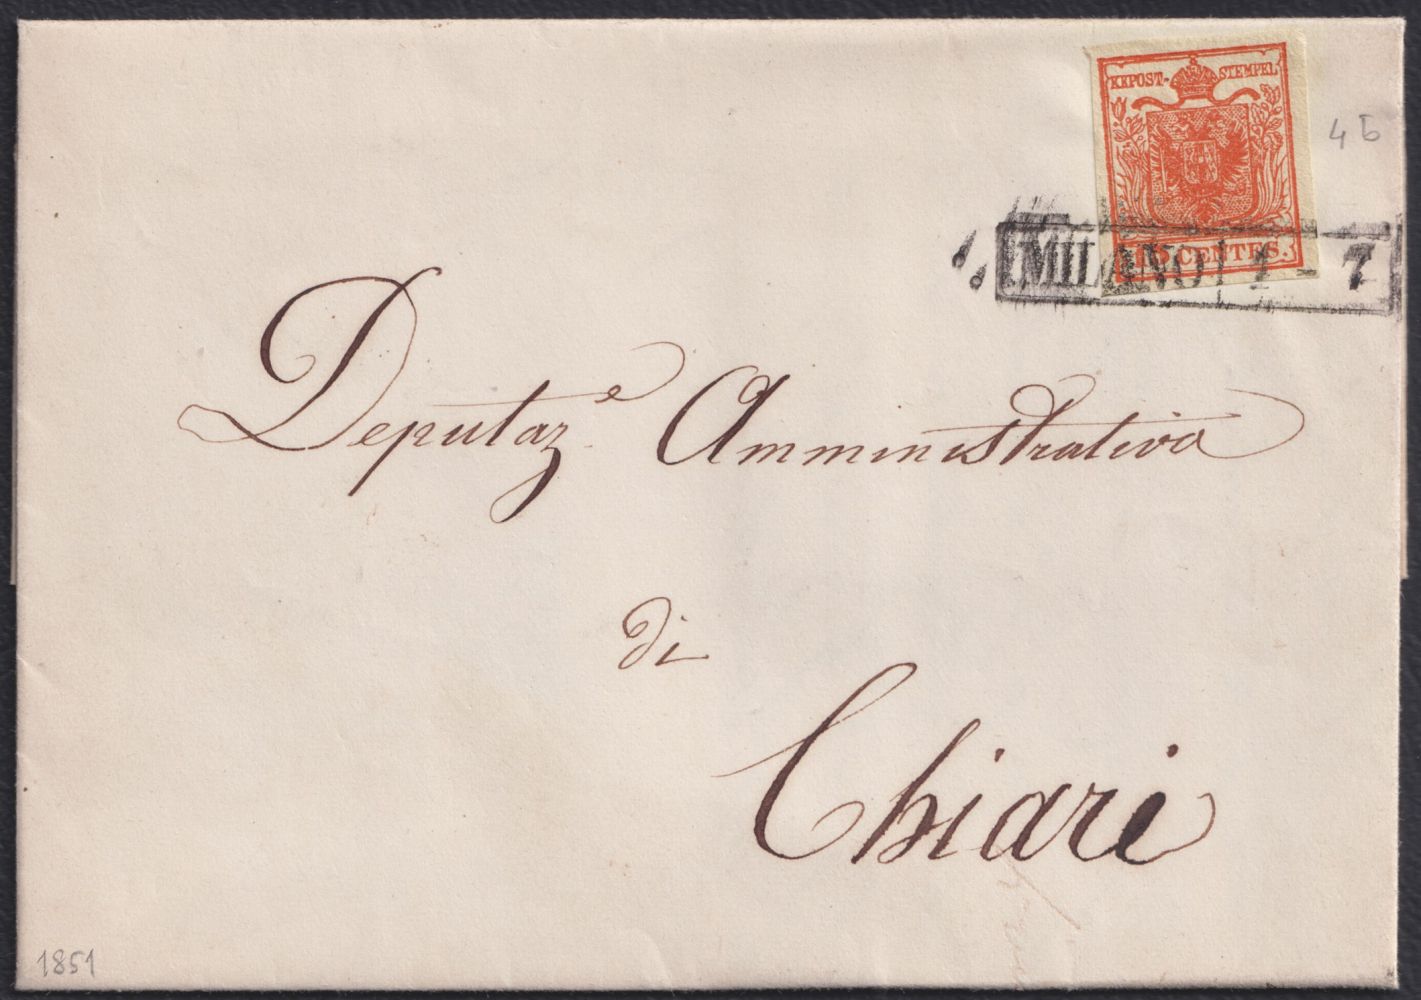 KKPOST-STEMPEL
4 b
15 CENTES.
MILANO 1 - 7
Deputaz.e Amministrativa
di
Chiari
1851